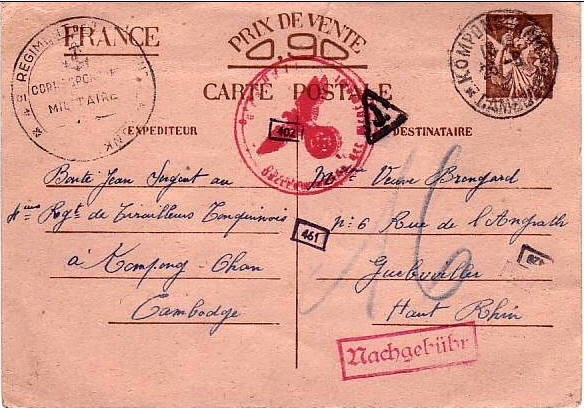 FRANCE
PRIX DE VENTE
0,90
CARTE POSTALE
REGIMENT
CORRESPONDANCE
MILITAIRE
KOMPONG
CAMBODGE
402
T
EXPÉDITEUR
DESTINATAIRE
Bonte Jean Sergent au
4ème Regt de Tirailleurs Tonquinois
à Kompong-Chan
Cambodge
Mme Veuve Brengard
No 6 Rue de l'Angrath
Guebwiller
Haut Rhin
461
16
Nachgebühr